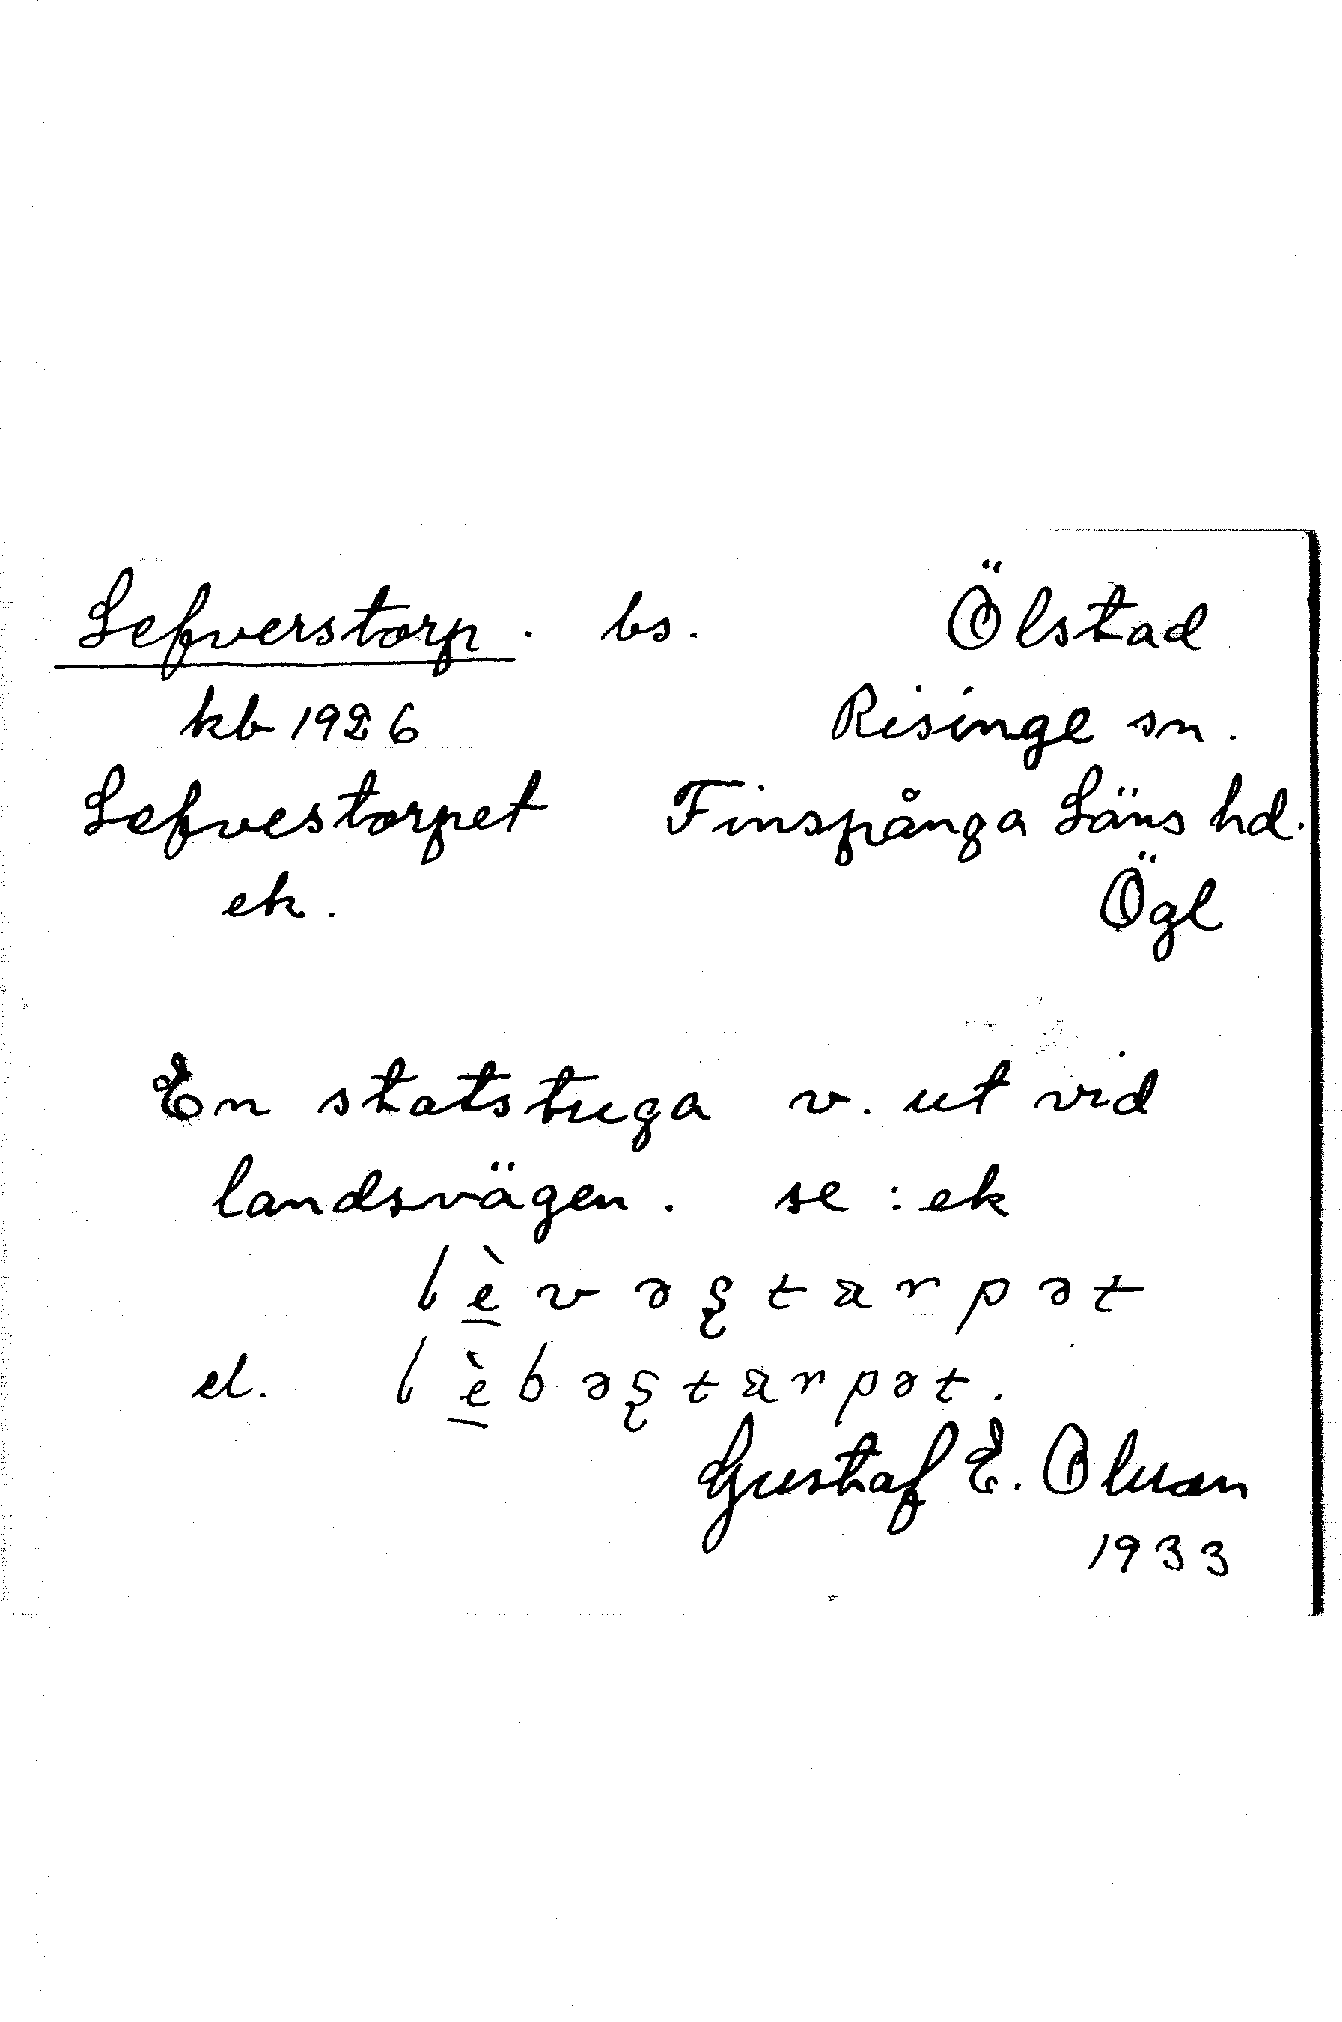 Lefverstorp. bs. Ölstad
kb 1926 Risinge sn.
Lefvestorpet Finspånga Läns hd.
ek. Ögl
En statstuga v. ut vid
landsvägen. se: ek
lèvəştarpət
el. lèbəştarpət.
Gustaf E.
1933